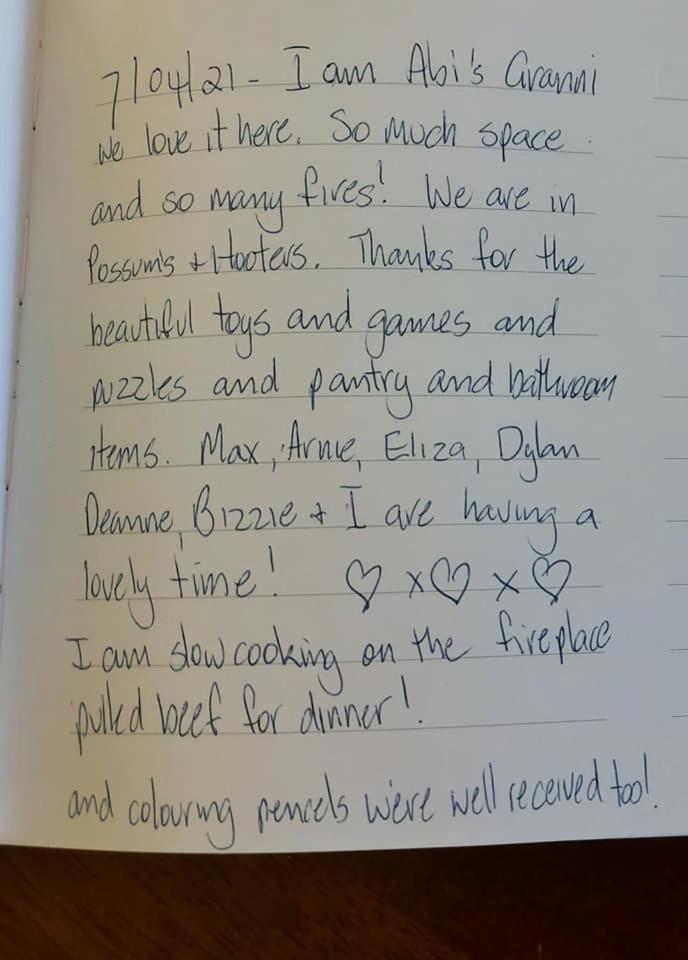 7/04/21 - I am Abi's Granni
we love it here. So much space
and so many fires! We are in
Possum's & Hooters. Thanks for the
beautiful toys and games and
puzzles and pantry and bathroom
items. Max, Arnie, Eliza, Dylan
Deanne, Bizzie & I are having a
lovely time! ♡ x ♡ x ♡
I am slow cooking on the fireplace
pulled beef for dinner!
and colouring pencels were well received too!